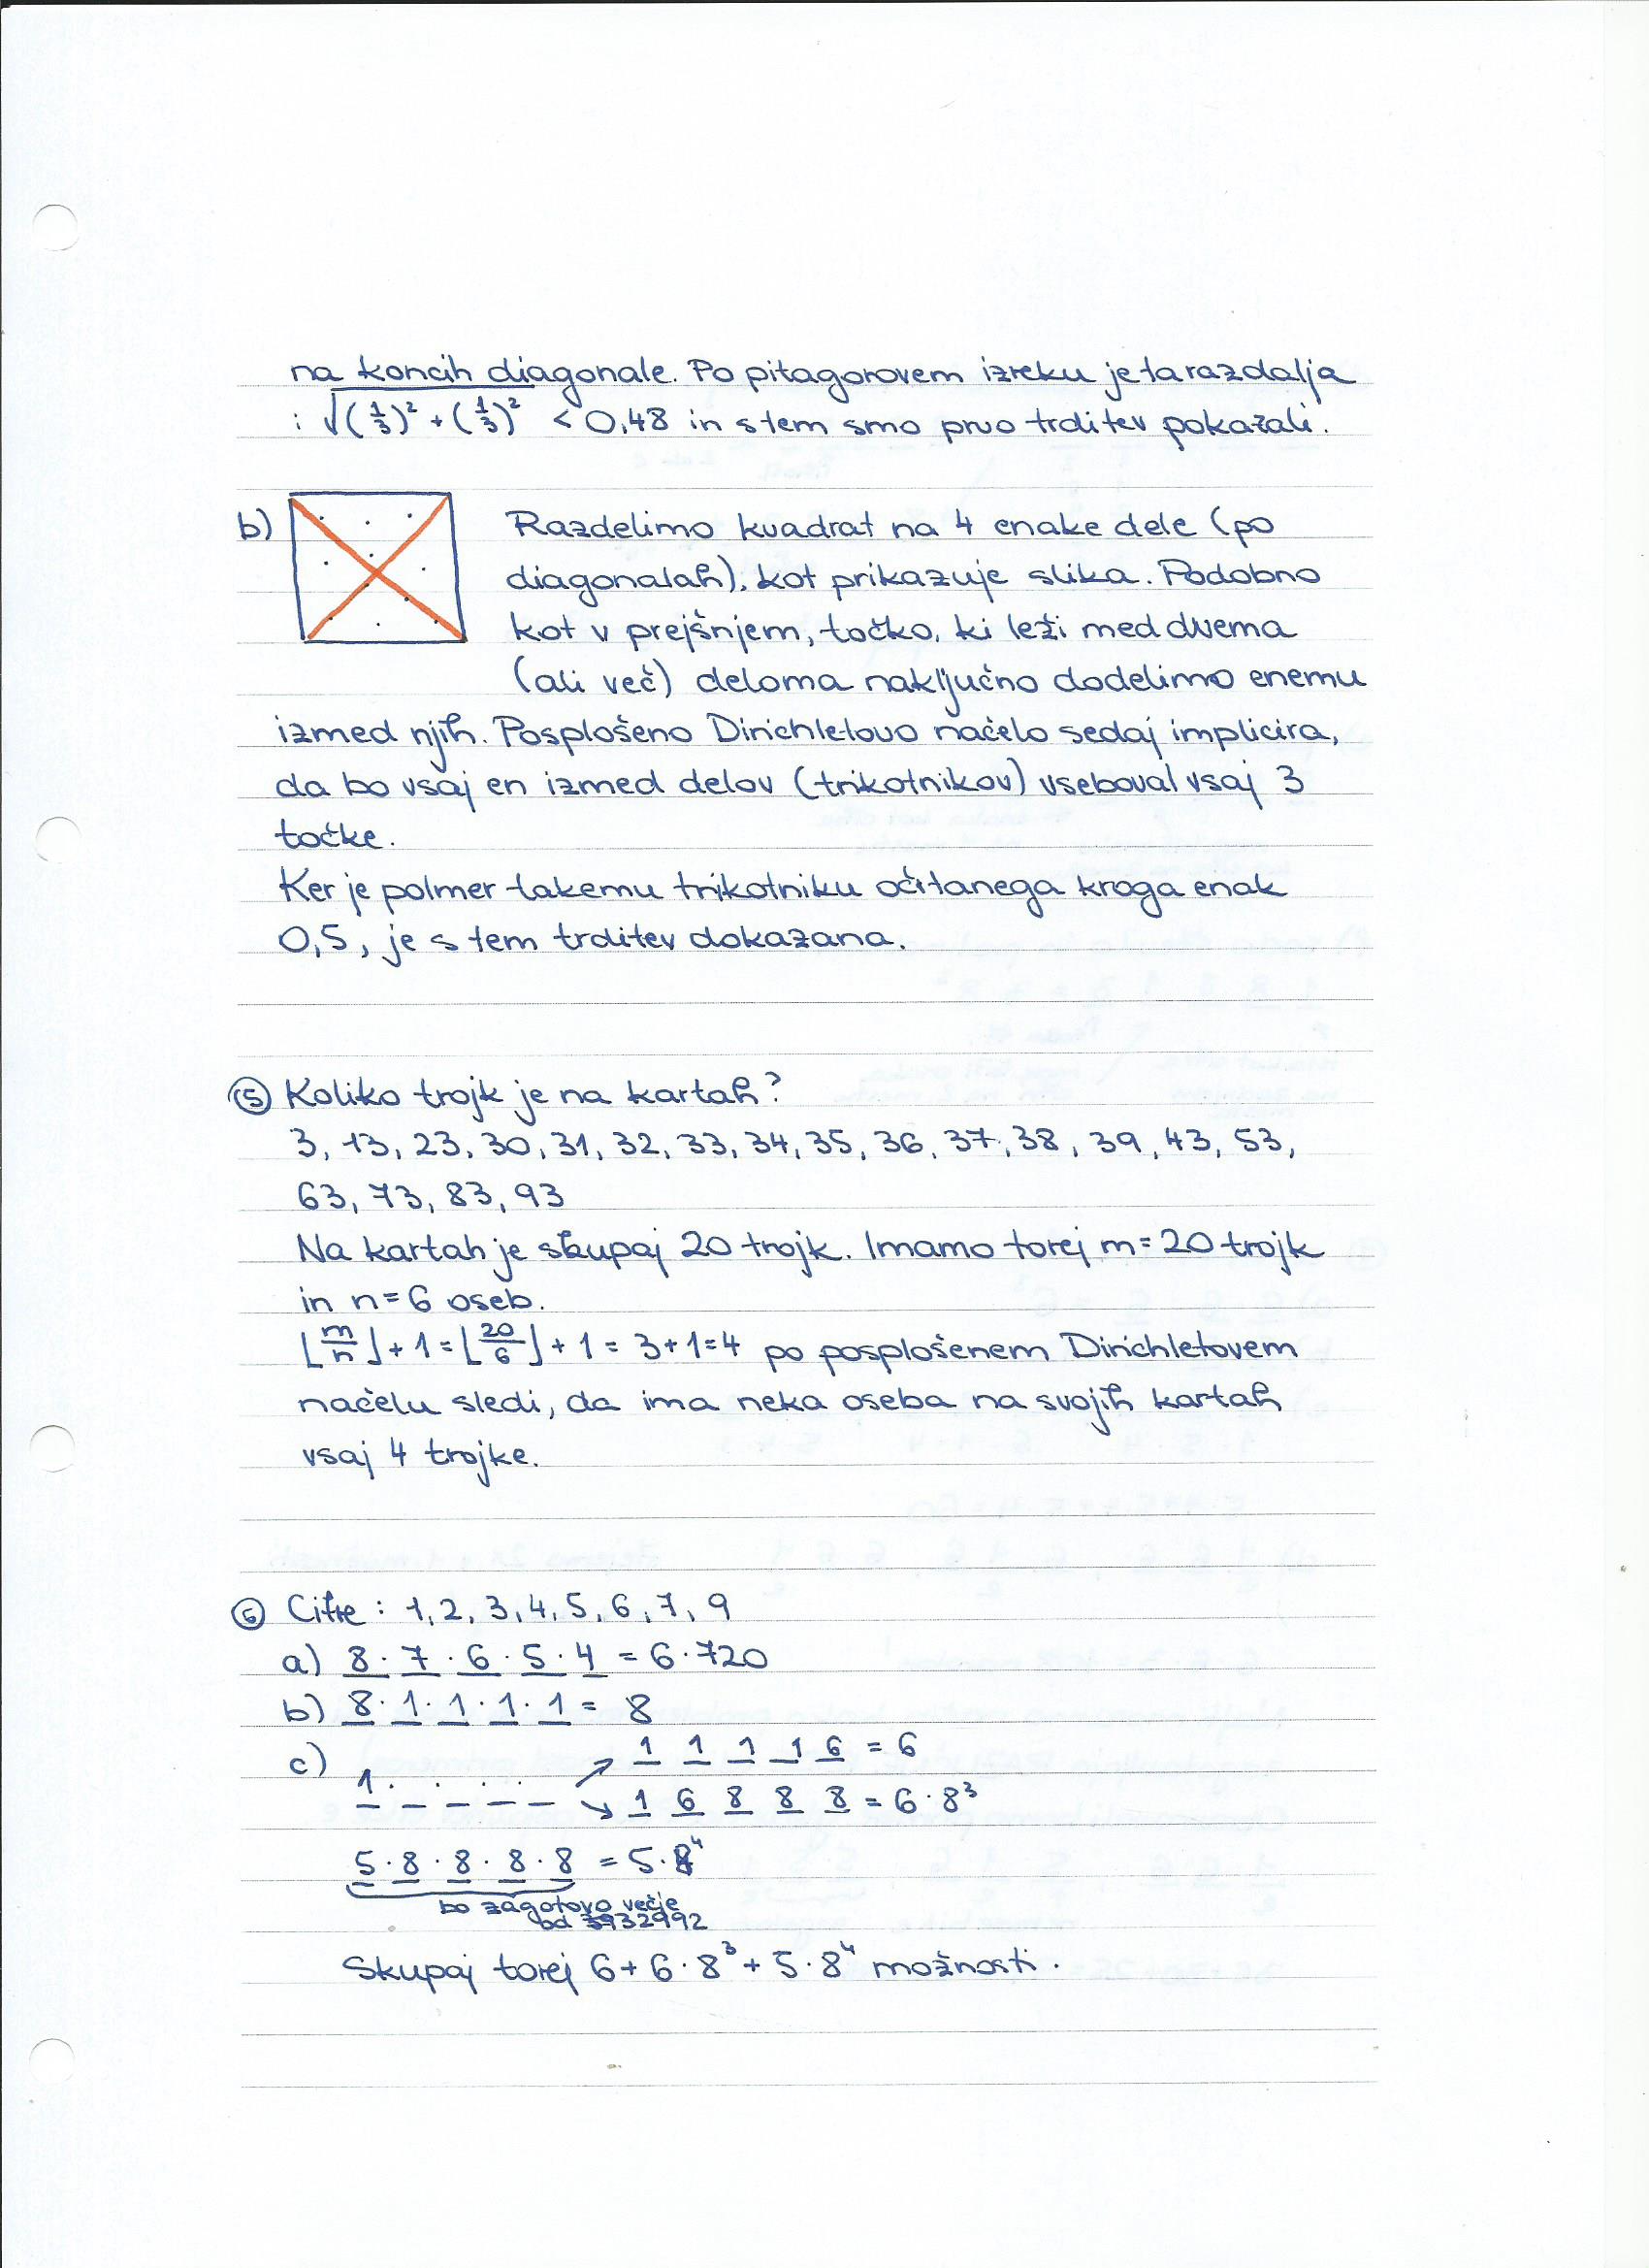 na koncih diagonale. Po pitagorovem izreku je ta razdalja
: √(1/3)² + (1/3)² < 0,48 in s tem smo prvo trditev pokazali.
b) Razdelimo kvadrat na 4 enake dele (po
diagonalah), kot prikazuje slika. Podobno
kot v prejšnjem, točko, ki leži med dvema
(ali več) deloma naključno dodelimo enemu
izmed njih. Posplošeno Dirichletovo načelo sedaj implicira,
da bo vsaj en izmed delov (trikotnikov) vseboval vsaj 3
točke.
Ker je polmer takemu trikotniku očrtanega kroga enak
0,5, je s tem trditev dokazana.
⑤ Koliko trojk je na kartah?
3, 13, 23, 30, 31, 32, 33, 34, 35, 36, 37, 38, 39, 43, 53,
63, 73, 83, 93
Na kartah je skupaj 20 trojk. Imamo torej m = 20 trojk
in n = 6 oseb.
⌊m/n⌋ + 1 = ⌊20/6⌋ + 1 = 3 + 1 = 4 po posplošenem Dirichletovem
načelu sledi, da ima neka oseba na svojih kartah
vsaj 4 trojke.
⑥ Cifre : 1, 2, 3, 4, 5, 6, 7, 9
a) 8 · 7 · 6 · 5 · 4 = 6·720
b) 8 · 1 · 1 · 1 · 1 = 8
c) 1 1 1 1 6 = 6
1 · · · ·
1 6 8 8 8 = 6 · 8³
5 · 8 · 8 · 8 · 8 = 5 · 8⁴
bo zagotovo večje
od 3932992
Skupaj torej 6 + 6 · 8³ + 5 · 8⁴ možnosti.